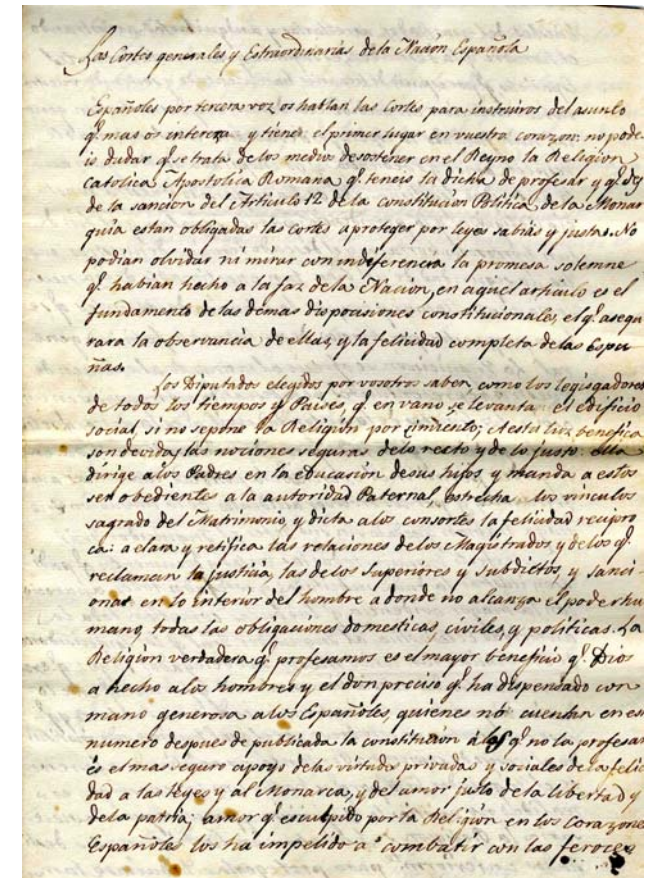 Las Cortes generales y Estraordinarias de la Nación Española
Españoles por tercera voz os hablan las Cortes para instruiros del asunto
q.e mas os interesa y tiene el primer lugar en vuestro corazon: no pode-
is dudar q.e se trata de los medios de sostener en el Reyno la Religion
Catolica Apostolica Romana q.e teneis la dicha de profesar y q.e
de la sancion del Articulo 12 de la constitucion Politica de la Monar
quia estan obligadas las cortes a proteger por leyes sabias y justas. No
podian olvidar ni mirar con indiferencia la promesa solemne
q.e habian hecho a la faz de la Nacion, en aquel articulo es el
fundamento de las demas disposiciones constitucionales, el q.e asegu
rara la observancia de ellas, y la felicidad completa de las Espa
ñas.
Los Diputados elegidos por vosotros saben, como los legisgadores
de todos los tiempos y Paises, q.e en vano se levanta el edificio
social, si no se pone la Religion por cimiento; A esta luz benefica
son devidas las nociones seguras de lo recto y de lo justo: ella
dirige a los Padres en la educasion de sus hijos y manda a estos
ser obedientes a la autoridad Paternal, estrecha los vinculos
sagrado del Matrimonio, y dicta a los consortes la felicidad recipro
ca: aclara y retifica las relaciones de los Magistrados y de los q.e
reclaman la justicia, las de los Superiores y Subdictos, y sanci-
onar en lo interior del hombre a donde no alcanza el poder hu
mano, todas las obligaciones domesticas, civiles, y politicas. La
Religion verdadera q.e profesamos es el mayor beneficio q.e Dios
a hecho a los hombres y el don preciso q.e ha dispensado con
mano generosa a los Españoles, quienes no cuentan en es
numero despues de publicada la constitucion a los q.e no la profesan
es el mas seguro apoyo de las virtudes privadas y sociales de la felic
dad a las leyes y al Monarca, y del amor justo de la libertad y
de la patria; amor q.e esculpido por la Religion en los corazone
Españoles los ha impelido a combatir con las feroces